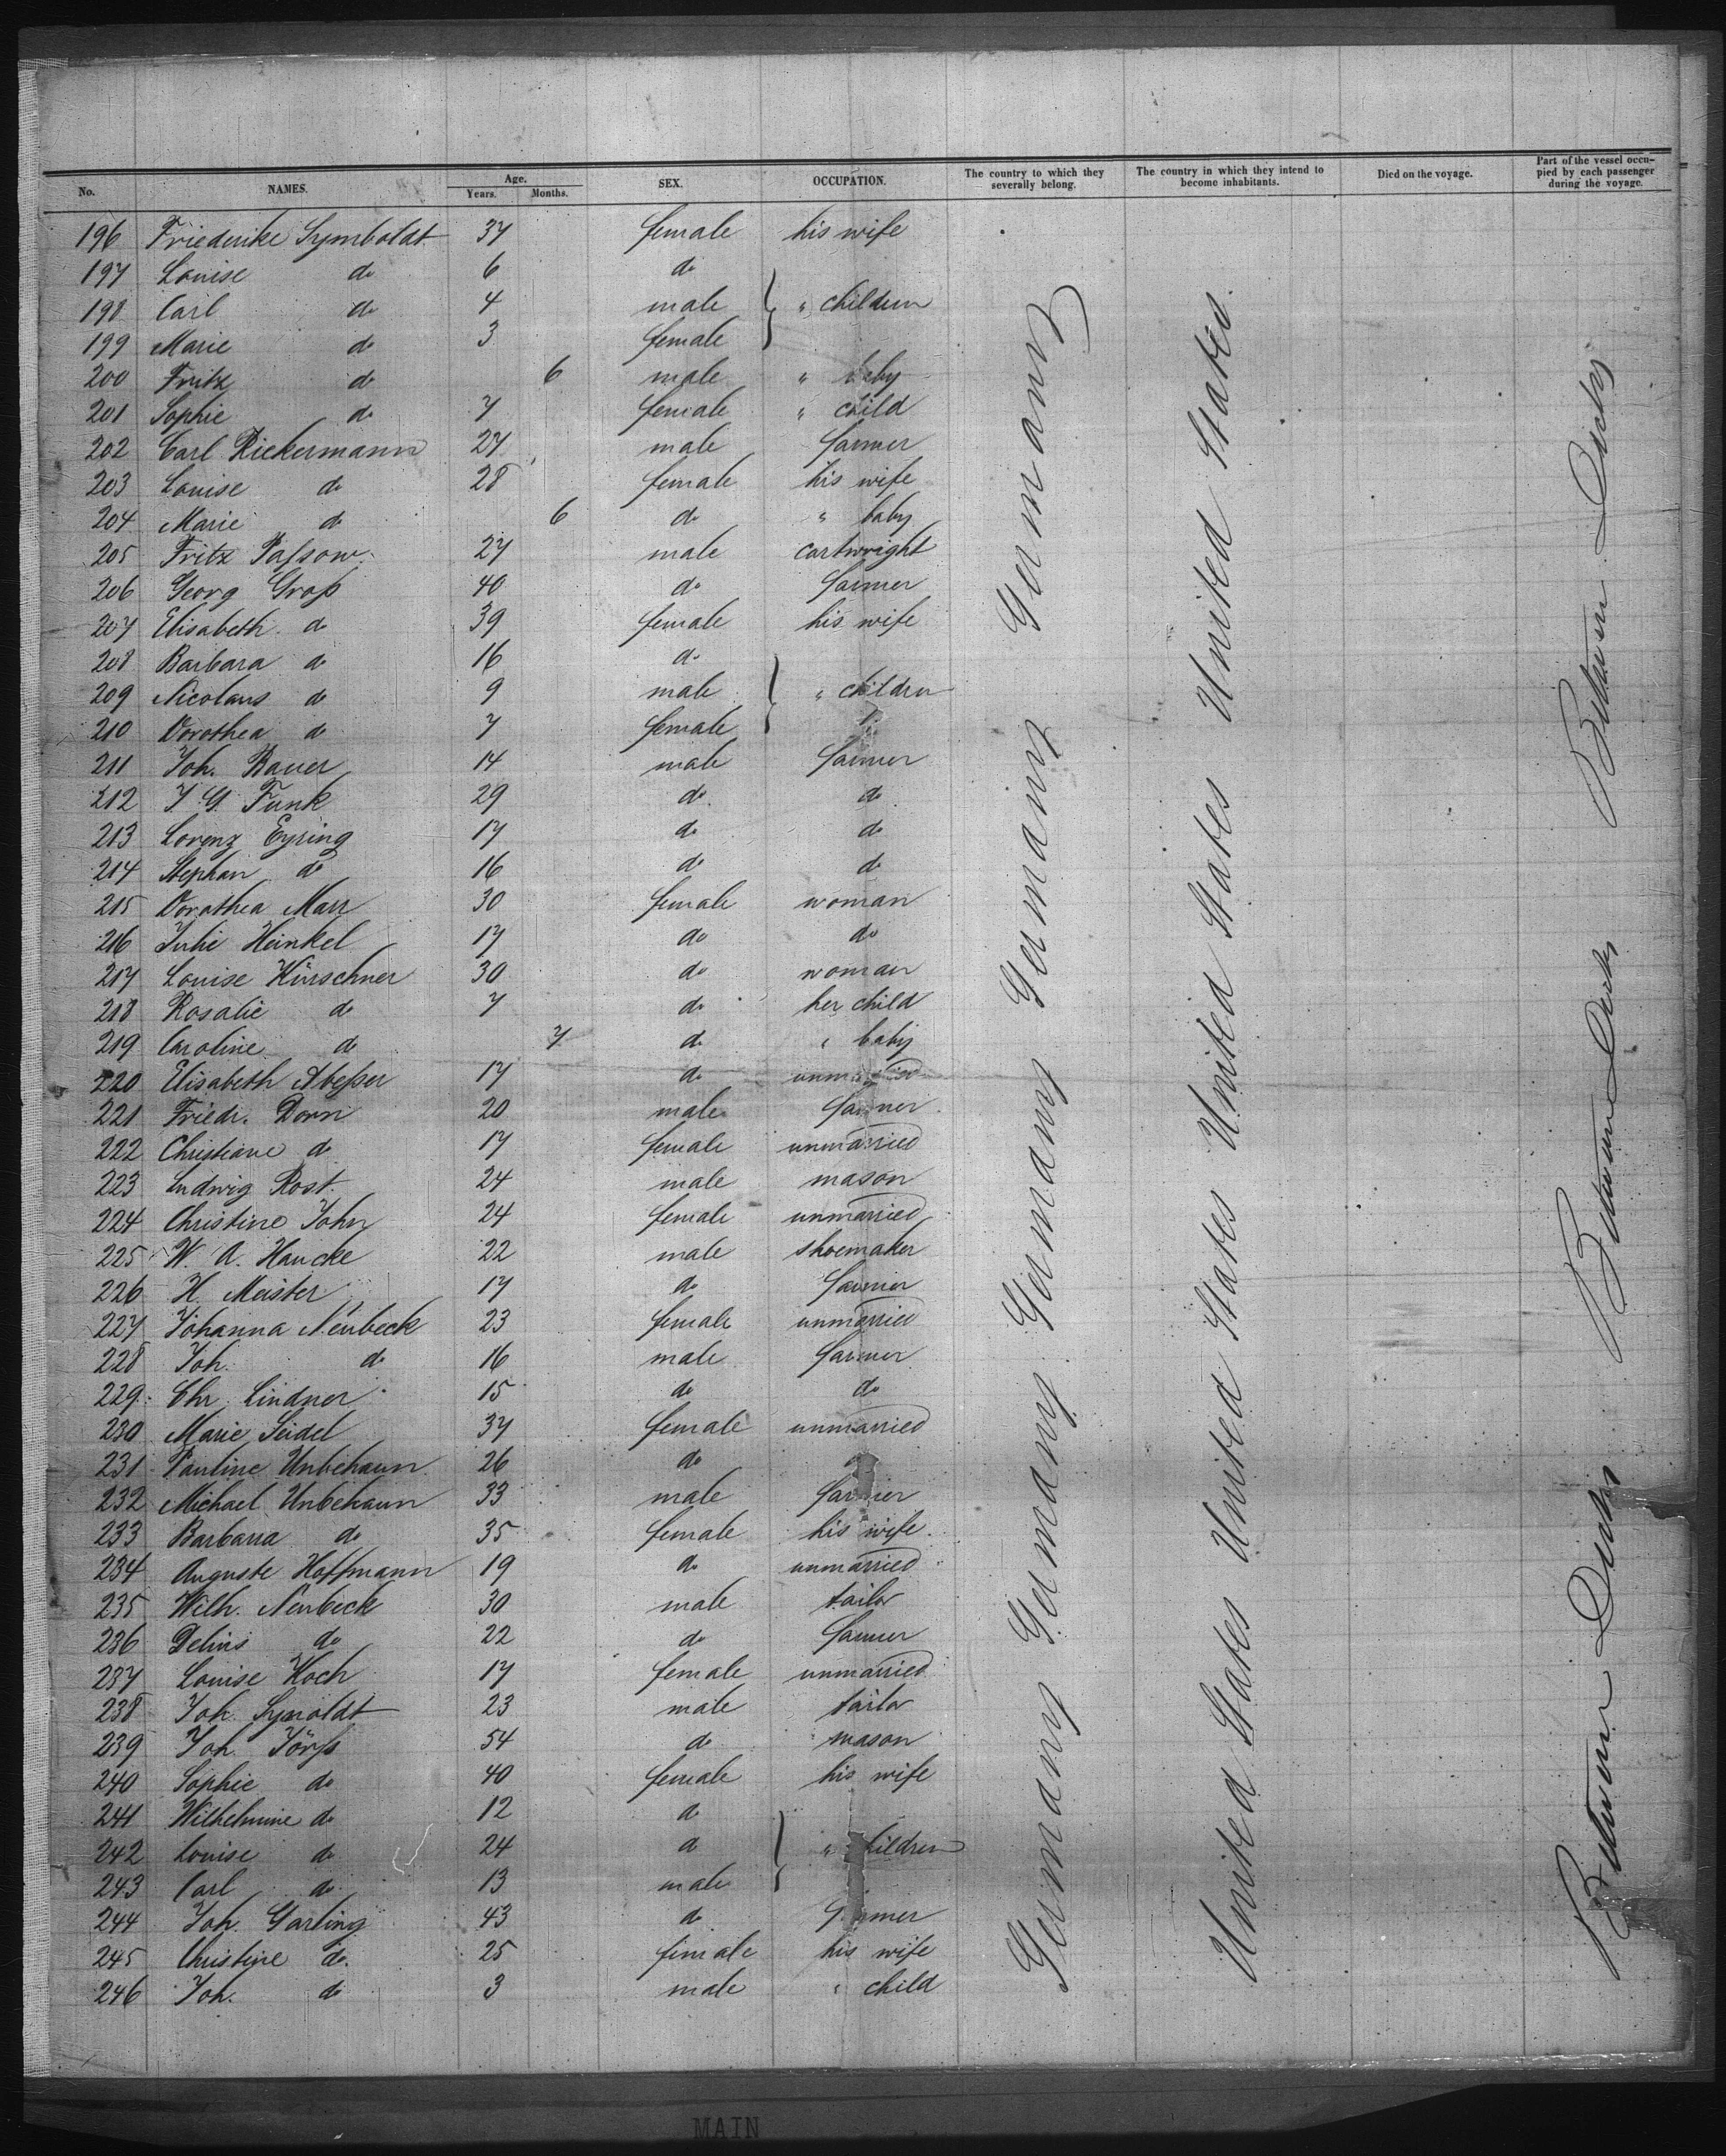 No. NAMES. Age. Years. Months. SEX. OCCUPATION. The country to which they severally belong. The country in which they intend to become inhabitants. Died on the voyage. Part of the vessel occu-pied by each passenger during the voyage.
196 Friederike Symboldt 37 female his wife
197 Louise do 6 do
198 Carl do 4 male " children
199 Marie do 3 female
200 Fritz do 6 male " baby
201 Sophie do 7 female " child
202 Carl Rickermann 27 male farmer
203 Louise do 28 female his wife
204 Marie do 6 do " baby
205 Fritz Passow 27 male cartwright
206 Georg Groß 40 do farmer
207 Elisabeth do 39 female his wife
208 Barbara do 16 do
209 Nicolaus do 9 male " children
210 Dorothea do 7 female
211 Joh. Bauer 14 male farmer
212 J G. Funk 29 do do
213 Lorenz Eyring 17 do do
214 Stephan do 16 do do
215 Dorothea Marr 30 female woman
216 Julie Heinkel 17 do do
217 Louise Kürschner 30 do woman
218 Rosalie do 7 do her child
219 Caroline do 7 do " baby
220 Elisabeth 17 do unmarried
221 Friedr. Dorn 20 male farmer
222 Christiane do 17 female unmarried
223 Ludwig Rost 24 male mason
224 Christine John 24 female unmarried
225 W. A. Haucke 22 male shoemaker
226 H. Meister 17 do farmer
227 Johanna Neubeck 23 female unmarried
228 Joh. do 16 male farmer
229 Chr. Lindner 15 do do
230 Marie Seidel 37 female unmarried
231 Pauline Unbehaun 26 do
232 Michael Unbehaun 33 male farmer
233 Barbara do 35 female his wife
234 Auguste Hoffmann 19 do unmarried
235 Wilh. Neubeck 30 male tailor
236 Delius do 22 do farmer
237 Louise Koch 17 female unmarried
238 Joh. Synoldt 23 male tailor
239 Joh. Jörß 54 do mason
240 Sophie do 40 female his wife
241 Wilhelmine do 12 do
242 Louise do 24 do " children
243 Carl do 13 male
244 Joh. Garling 43 do farmer
245 Christine do. 25 female his wife
246 Joh. do 3 male " child
Germany Germany Germany Germany Germany
United States United States United States United States
Between Decks Between Decks Between Decks
MAIN